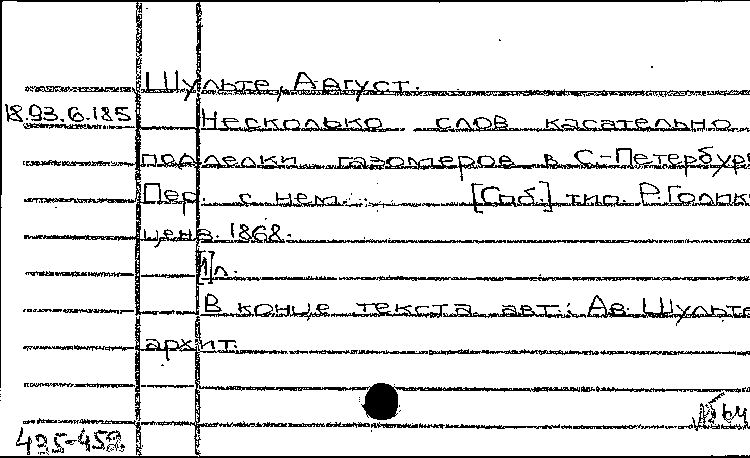 Шульте, Август.
18.93.6.185 Несколько слов касательно
подделки газомеров в С.-Петербур
Пер. с нем. [Спб.] тип. Р. Голик
цена. 1868.
[1] л.
В конце текста авт.: Ав. Шульте
архит.
№ 64
435-452